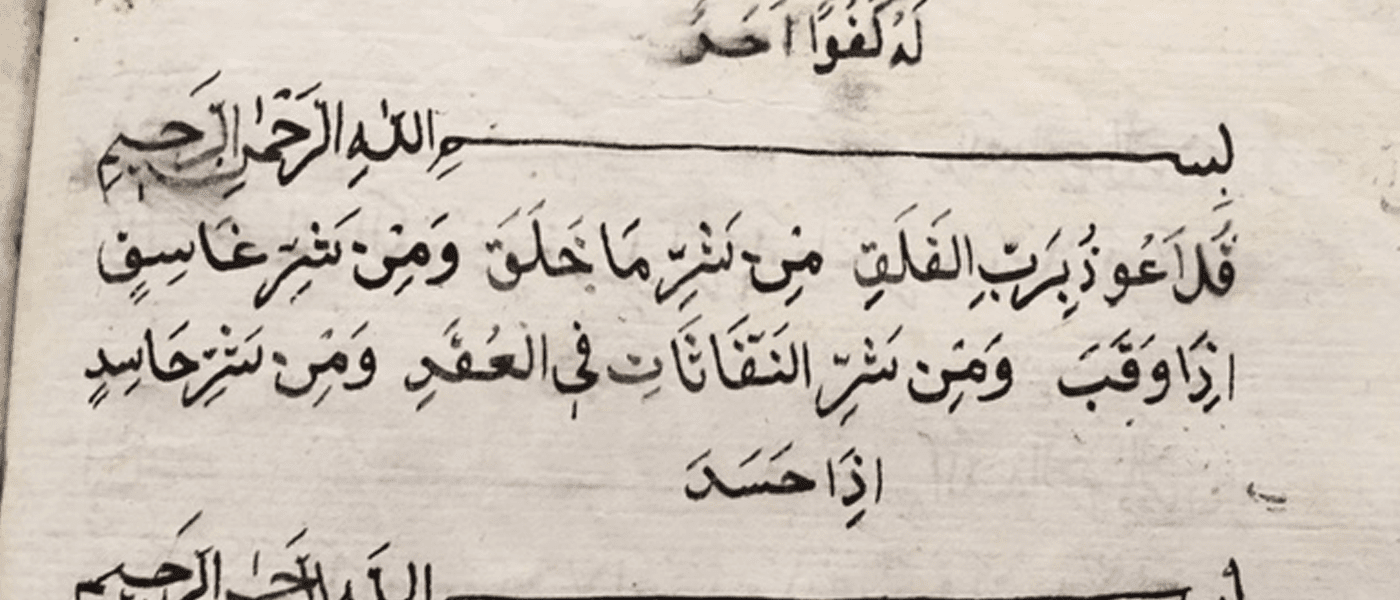 لَهُ كُفُوًا اَحَدٌ
بِسْمِ اللّٰهِ الرَّحْمٰنِ الرَّحِيمِ
قُلْ اَعُوذُ بِرَبِّ الْفَلَقِ مِنْ شَرِّ مَا خَلَقَ وَمِنْ شَرِّ غَاسِقٍ
اِذَا وَقَبَ وَمِنْ شَرِّ النَّفَّاثَاتِ فِي الْعُقَدِ وَمِنْ شَرِّ حَاسِدٍ
اِذَا حَسَدَ
بسم اللّٰه الرَّحْمٰن الرَّحِيم